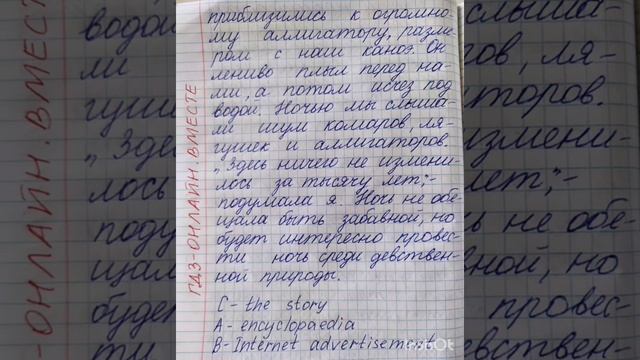 приблизились к огромно-
му аллигатору, разме-
ром с наш каноэ. Он
лениво плыл перед на-
ми, а потом исчез под
водой. Ночью мы слыша-
ли шум комаров, ля-
гушек и аллигаторов.
„Здесь ничего не измени-
лось за тысячу лет",-
подумала я. Ночь не обе-
щала быть забавной, но
будет интересно провес-
ти ночь среди девствен-
ной природы.
C - the story
A - encyclopaedia
B - Internet advertisement
ГДЗ-ОНЛАЙН.ВМЕСТЕ